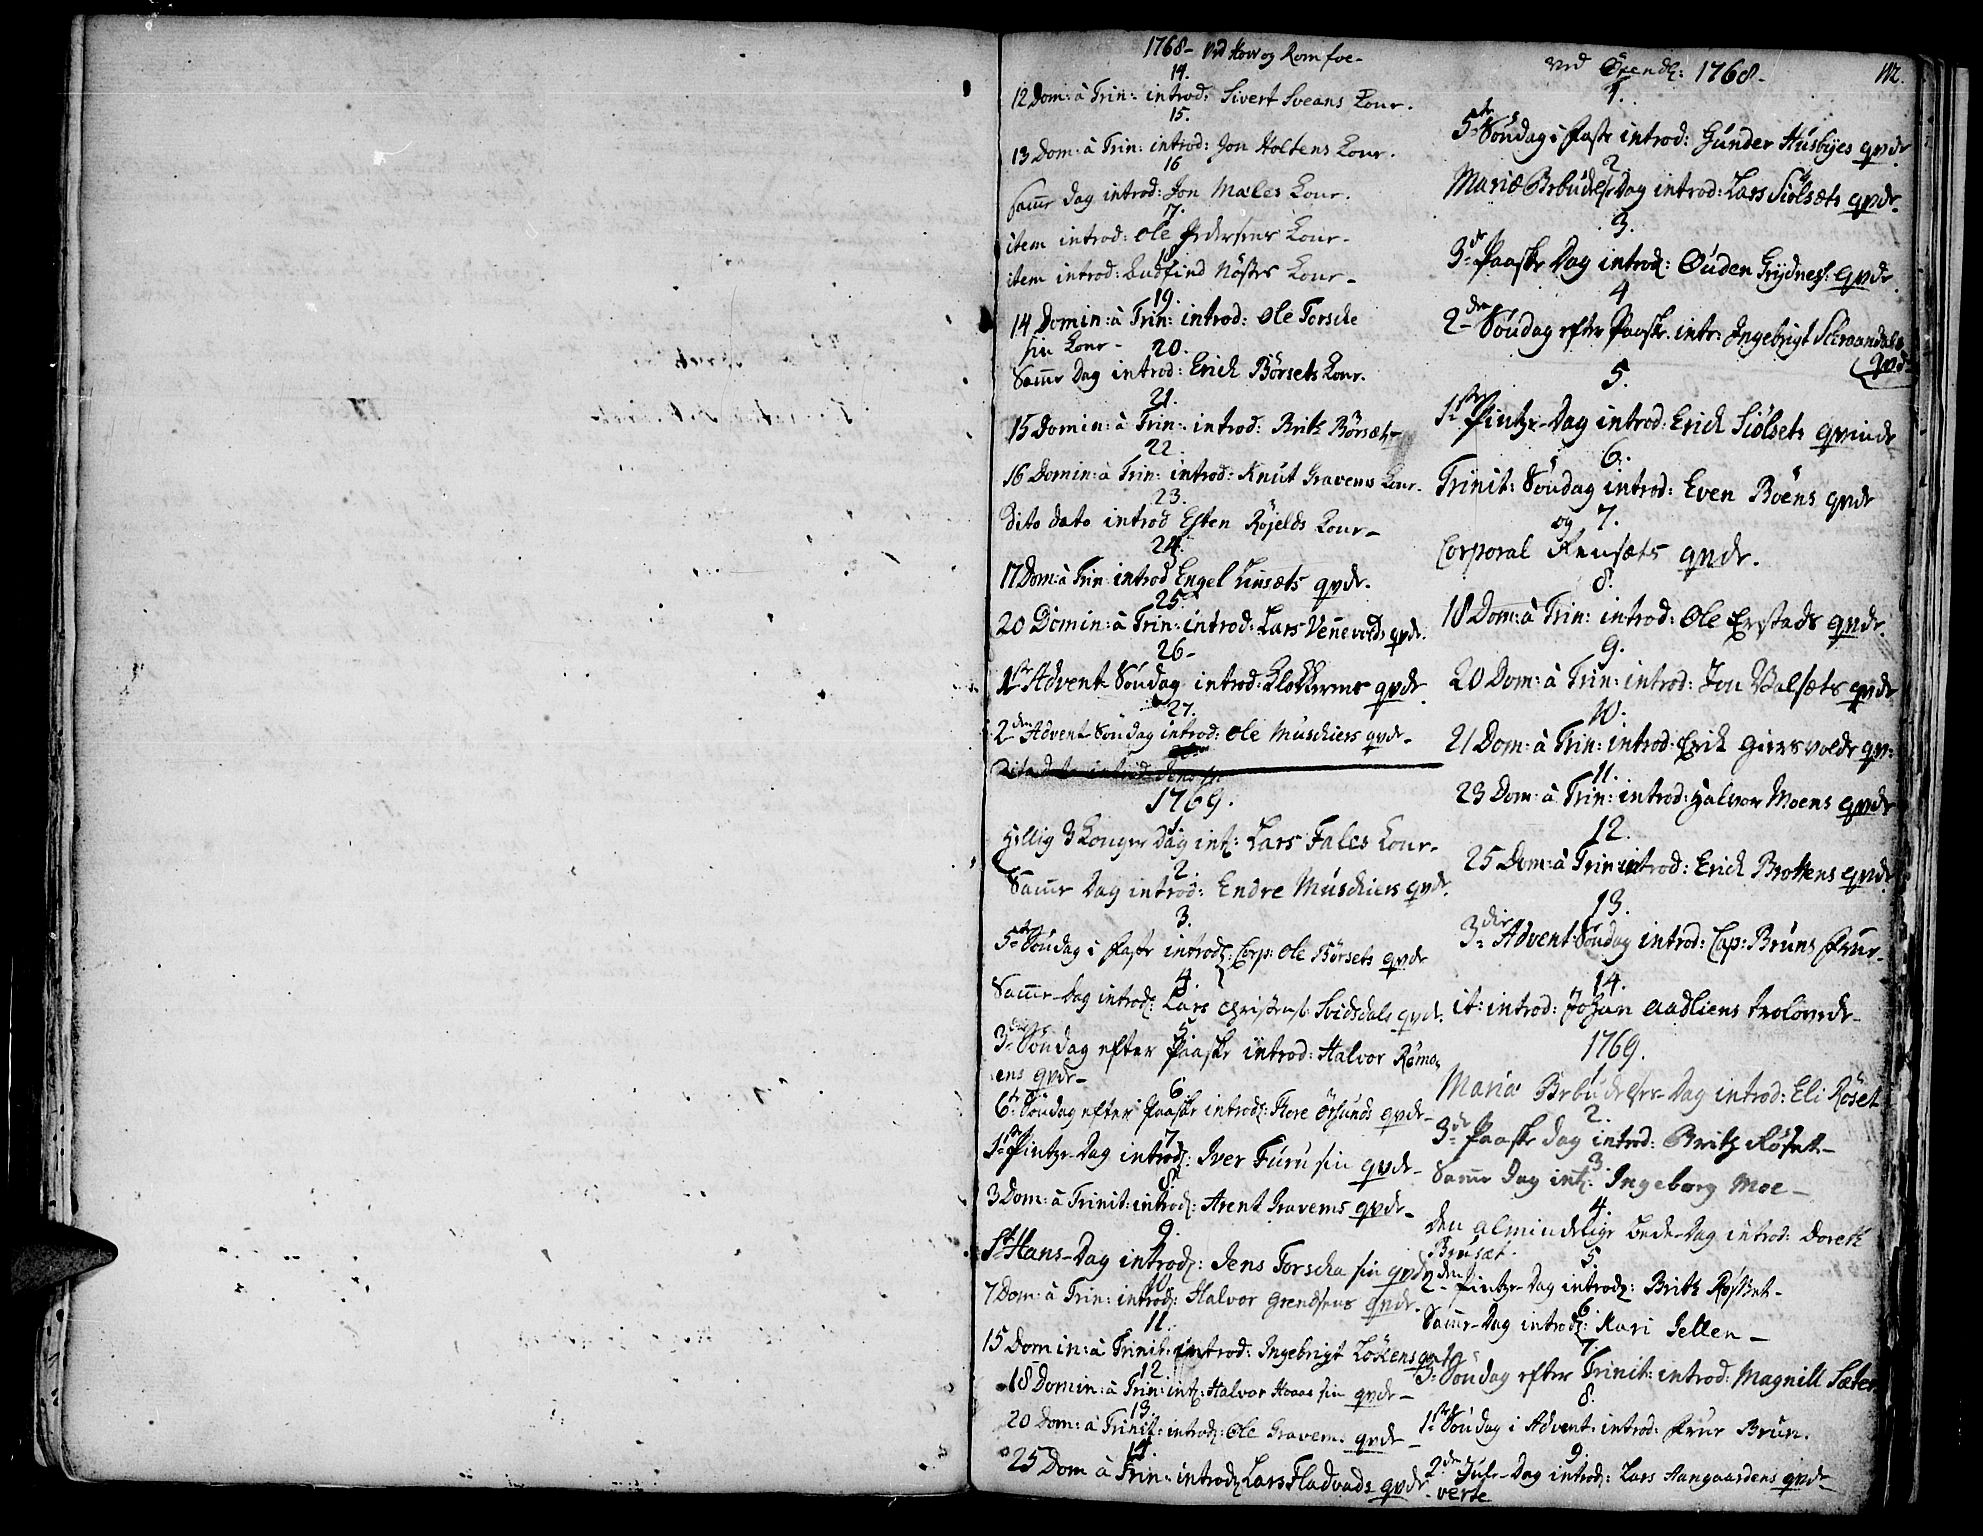 1768 - ved Hov og Romfoe -
14.
12 Dom: à Trin: introd: Sivert Sveans Kone.
15.
13 Dom: à Trin: introd: Jon Holtens Kone.
16
Samme Dag introd: Jon Males Kone.
17.
item introd: Ole Pedersens Kone -
18
item introd: Gudfind Nøstes Kone -
19.
14 Domin: à Trin: introd: Ole Torske
sin Kone -
20.
Samme Dag introd: Erich Børsets Kone.
21.
15 Domin: à Trin: introd: Brit Børsæt -
22.
16 Domin: à Trin: introd: Knut Gravems Kone.
23.
Dito dato introd Esten Røjelds Kone -
24.
17 Dom: à Trin introd Engel Linsæts qvde.
25.
20 Domin: à Trin: introd: Lars Vennevolds qvde.
26 -
1ste Advent Søndag introd: Klokkerens qvde
27.
2den Advent Søndag introd: Ole Muschiers qvde -
Dito dato introd: Jens
1769.
1.
Hellig 3 Konger Dag int: Lars Fales Kone -
2.
Samme Dag introd: Endre Muschiers qvde.
3.
5te Søndag i Faste introd: Corp: Ole Børsets qvde
4.
Samme Dag introd: Lars Christens: Svidsdals qvde.
5
3die Søndag efter Paaske introd: Halvor Rømo
ens qvde -
6.
6te Søndag efter Paaske introd: Tore Ørsunds qvde -
7
1ste Pintze-Dag introd: Iver Furu sin qvde -
8.
3 Dom: à Trinit: introd: Arent Gravems qvde -
9.
St Hans-Dag introd: Jens Torscha sin qvde
10
7 Dom: à Trin: introd: Halvor Grendsens qvde -
11.
15 Domin: à Trinit: introd: Ingebrigt Løkens qvde
12.
18 Domin: à Trin: int: Halvor Hoaas sin qvde -
13.
20 Dom: à Trinit: introd: Ole Gravems qvde -
14.
25 Dom à Trin: introd: Lars Fladvads qvde
ved Øxendl: 1768 -
112.
1.
5te Søndag i Faste introd: Gunder Husbyes qvde
2.
Mariæ Bebudelse Dag introd: Lars Siølsæts qvde -
3.
3de Paaske Dag introd: Ouden Grydnes: qvde
4
2den Søndag efter Paaske. intr: Ingebrigt Skraandals
qvd:
5.
1ste Pintze-Dag introd: Erich Siølsets qvinde
6.
Trinit: Søndag introd: Even Bøens qvde
og 7.
Corporal Reusæts qvde.
8.
18 Dom: à Trin: introd: Ole Erstads qvde.
9.
20 Dom: à Trin: introd: Jon Balsæts qvde
10.
21 Dom: à Trin: introd: Erik Giersvolds qv:
11.
23 Dom: à Trin: introd: Halvor Moens qvde
12.
25 Dom: à Trin: introd: Erich Brottens qvde
13.
3die Advent Søndag introd: Cap: Bruns Frue -
14.
it: introd: Johan Aadliens trolovede -
1769.
1
Mariæ Bebudelses-Dag introd: Eli Røset
2.
3de Paaske dag introd: Britz Røset -
3
Samme Dag int: Ingeborg Moe -
4.
den almindelige bede-Dag introd: Doreth
Brusæt.
5.
2den Pintze-Dag introd: Brit Røsket -
6.
Samme-Dag introd: Kari Jellen -
7.
3die Søndag efter Trinit: introd: Magnill Sæter
8.
1ste Søndag i Advent: introd: Frue Brun.
9.
2de Jule-Dag introd: Lars Aangaardens qvde -
verte